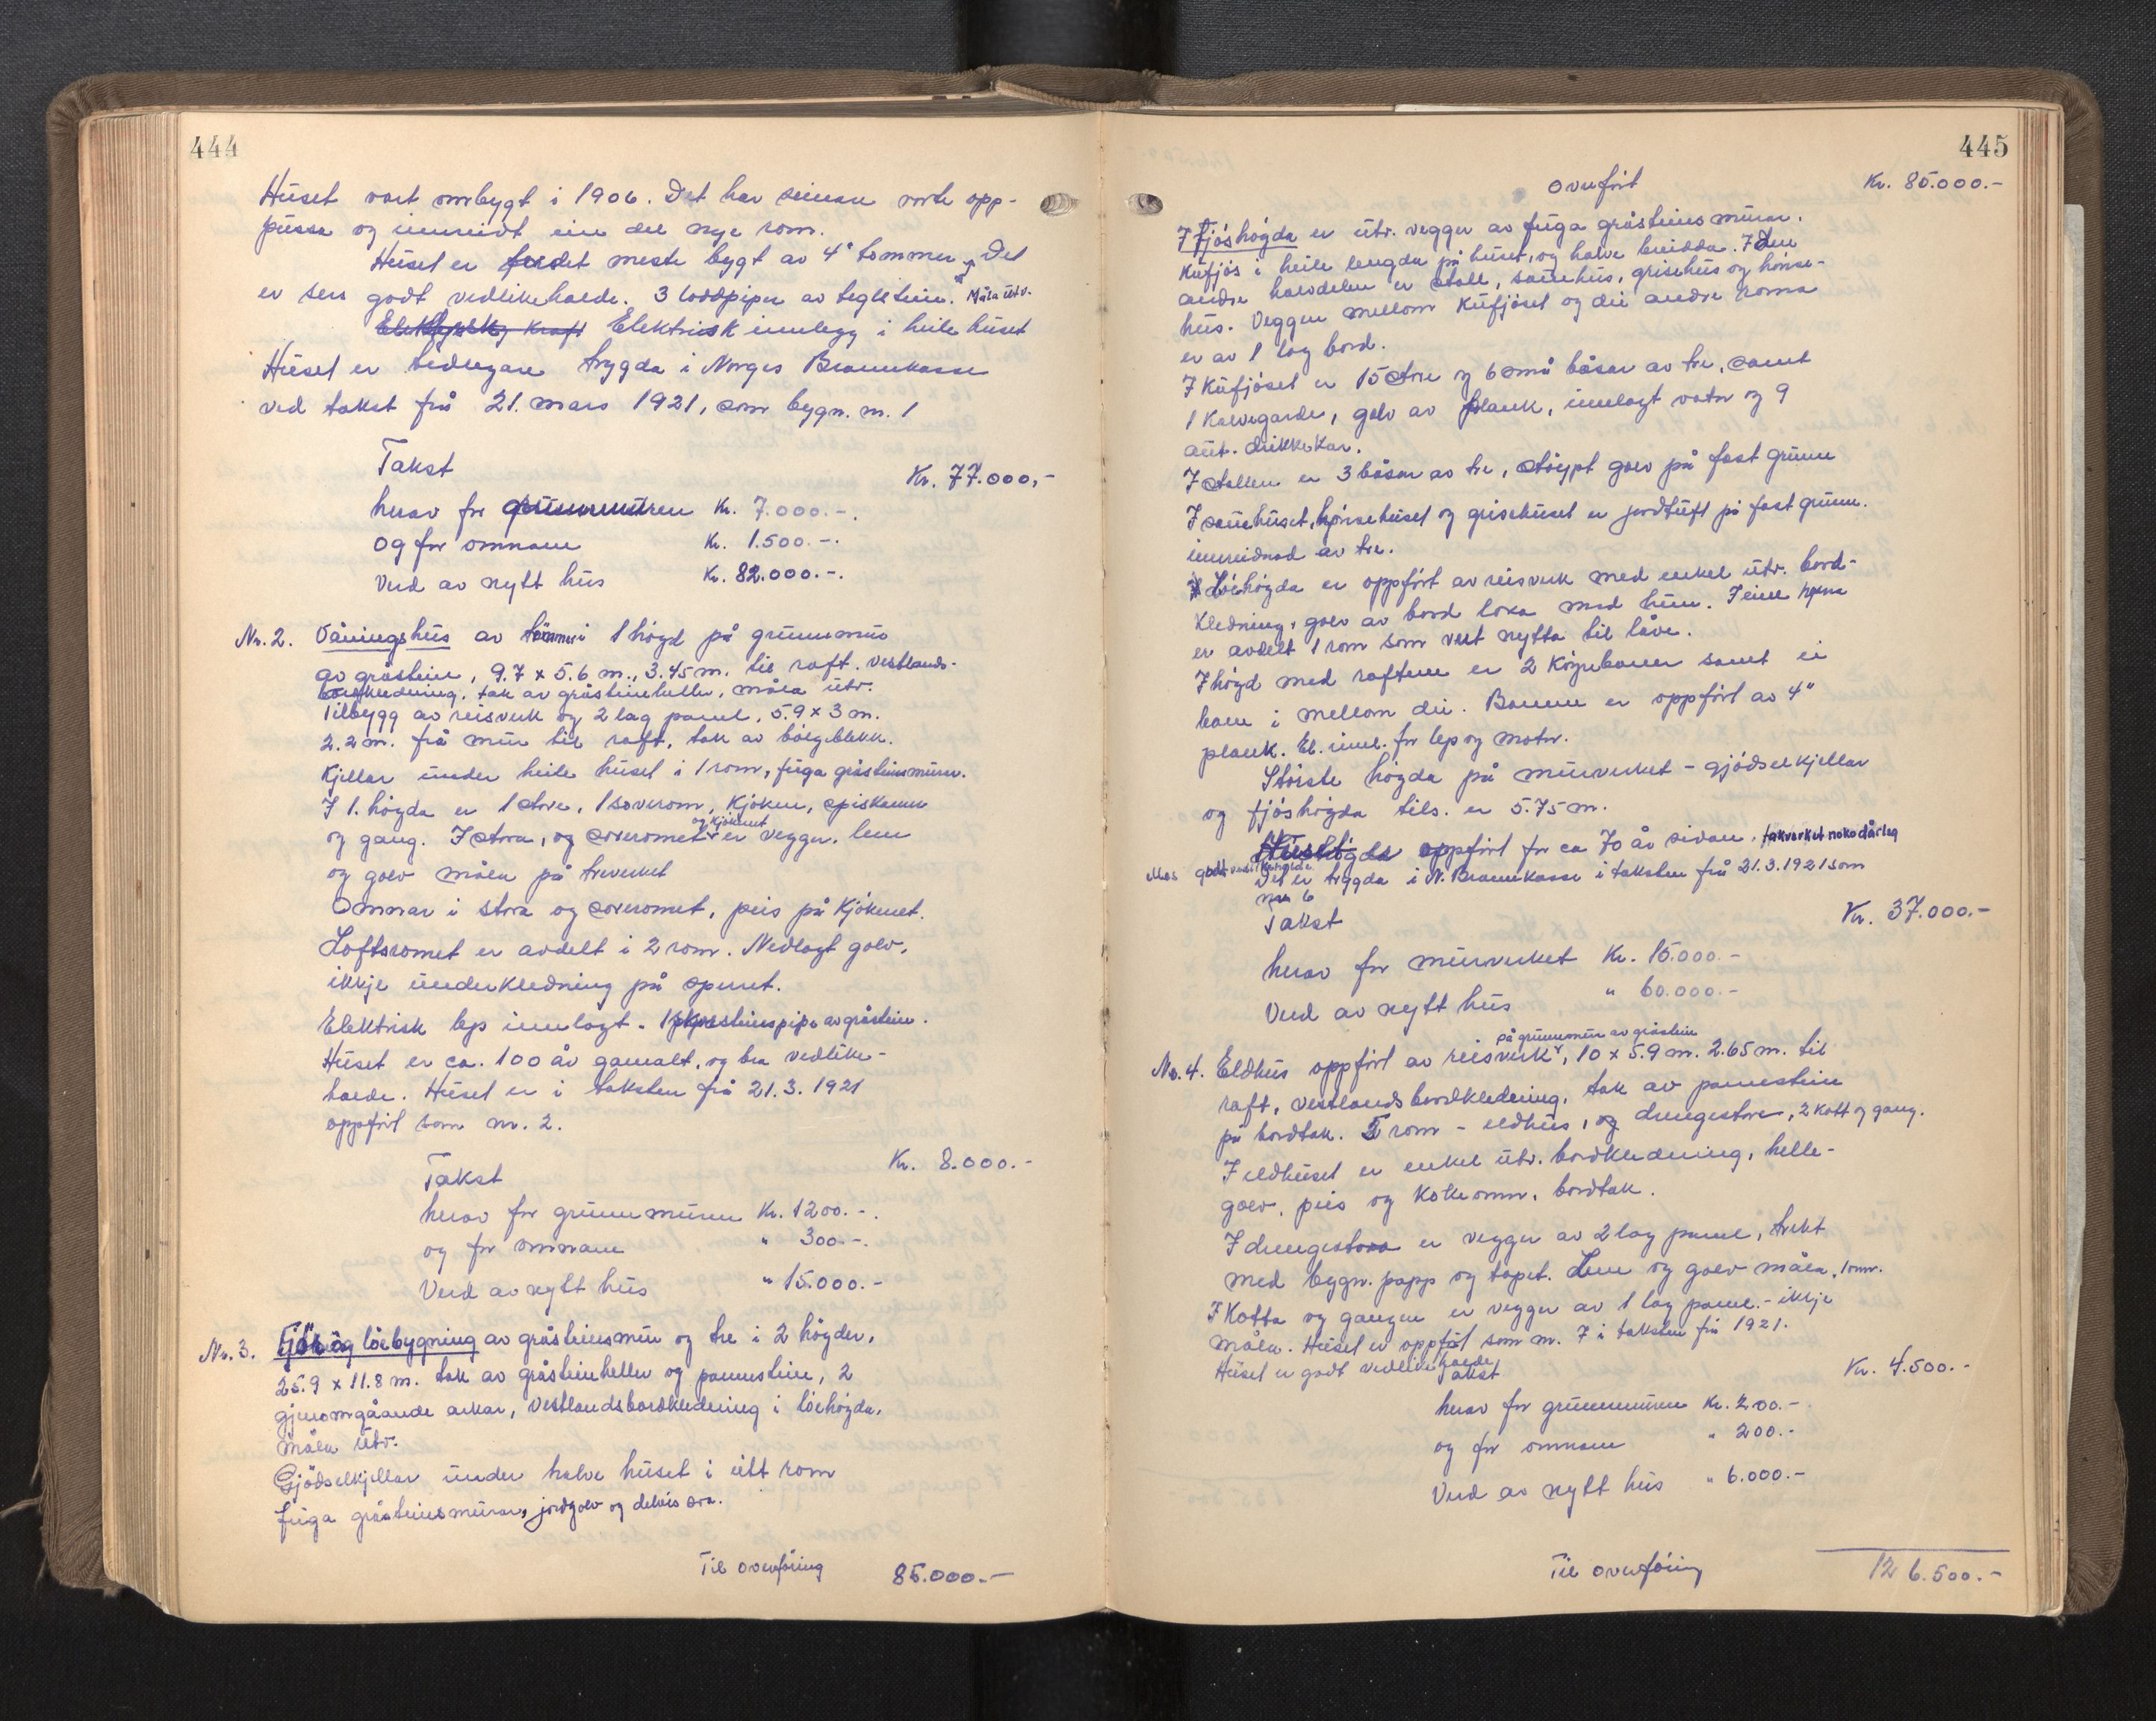 444
Huset vart ombygt i 1906. Det har seinare vorte opp-
pussa og innreidt ein del nye rom.
Huset er for det meste bygt av 4" tømmer. Det
er sers godt vedlikehalde. 3 loddpiper av teglstein. Måla utv.
Elektrisk kraft Elektrisk innlegg i heile huset
Huset er tidlegare trygda i Norges Brannkasse
ved takst frå 21. mars 1921, som bygn. nr. 1
Takst Kr. 77.000,-
herav for grunnmuren Kr. 7.000.-.
og for omnane Kr. 1.500.-.
Verd av nytt hus Kr. 82.000.-.
Nr. 2. Våningshus av tømmer i 1 høgd på grunnmur
av gråstein, 9.7 x 5.6 m., 3.45 m. til raft. Vestlands-
bordkledning. tak av gråsteinheller, måla utv.
Tilbygg av reisverk og 2 lag panel, 5.9 x 3 m.
2.2 m. frå mur til raft, tak av bølgeblekk.
Kjellar under heile huset i 1 rom, fuga gråsteinsmurar.
I 1. høgda er 1 stove, 1 soverom, kjøken, spiskammer
og gang. I stova, og soveromet og kjøkenet er vegger, lem
og golv måla på treverket
Omnar i stova og soveromet, peis på kjøkenet.
Loftsromet er avdelt i 2 rom. Nedlagt golv,
ikkje underkledning på sperret.
Elektrisk lys innlagt. 1 skorsteinspipe av gråstein.
Huset er ca. 100 år gamalt, og bra vedlike-
halde. Huset er i taksten frå 21.3.1921
oppført som nr. 2.
Takst Kr. 8.000.-
herav for grunnmuren Kr. 1200.-.
og for omnane " 300.-.
Verd av nytt hus " 15.000.-
Nr. 3. Fjös og löebygning av gråsteinsmur og tre i 2 høgder,
25.9 x 11.8 m. tak av gråsteinheller og pannestein, 2
gjenomgåande arkar, Vestlandsbordkledning i löehøgda,
måla utv.
Gjödselkjellar under halve huset i eitt rom
fuga gråsteinsmurar, jordgolv og delvis
Til overføring 85.000.-
445
Overført Kr. 85.000.-
I fjöshøgda er utv. vegger av fuga gråsteinsmurar.
Kufjös i heile lengda på huset, og halve breidda. I den
andre halvdelen er stall, sauehus, grisehus og hønse-
hus. Veggen mellom kufjöset og dei andre roma
er av 1 lag bord.
I kufjöset er 15 store og 6 små båsar av tre, samt
1 kalvegarde, golv av plank, innlagt vatn og 9
aut. drikkekar.
I stallen er 3 båsar av tre, støypt golv på fast grunn
I sauehuset, hønsehuset og grisehuset er jordtuft på fast grunn.
innreidnad av tre.
Löehøgda er oppført av reisverk med enkel utv. bord-
kledning, golv av bord loka med hun. I eine hjørna
er avdelt 1 rom som vert nytta til låve.
I høgd med raftene er 2 køyrebaner samt ei
bane i mellom dei. Banene er oppført av 4"
plank. El. innl. for lys og motor.
Største høgda på murverket - gjödselkjellar
og fjöshøgda tils. er 5.75 m.
oppført for ca 70 år sidan. takverket noko dårleg
godt vedlikehalde
Det er trygda i N. Brannkasse i taksten frå 21.3.1921 som
nr. 6
Takst Kr. 37.000.-
herav for murverket Kr. 15.000.-
Verd av nytt hus " 60.000.-
på grunnmur av gråstein
Nr. 4. Eldhus oppført av reisverk, 10 x 5.9 m. 2.65 m. til
raft, vestlandsbordkledning, tak av pannestein
på bordtak. 5 rom - eldhus, og drengestove, 2 kott og gang.
I eldhuset er enkel utv. bordkledning, helle-
golv, peis og kokeomn, bordtak.
I drengestova er vegger av 2 lag panel, trekt
med bygn. papp og tapet. Lem og golv måla, 1 omn.
I kotta og gangen er vegger av 1 lag panel - ikkje
måla. Huset er oppført som nr. 7 i taksten frå 1921.
Huset er godt vedlikehalde
Takst Kr. 4.500.-
herav for grunnmuren Kr. 200.-
og for omnane " 200.-
Verd av nytt hus " 6.000.-
Til overføring 126.500.-